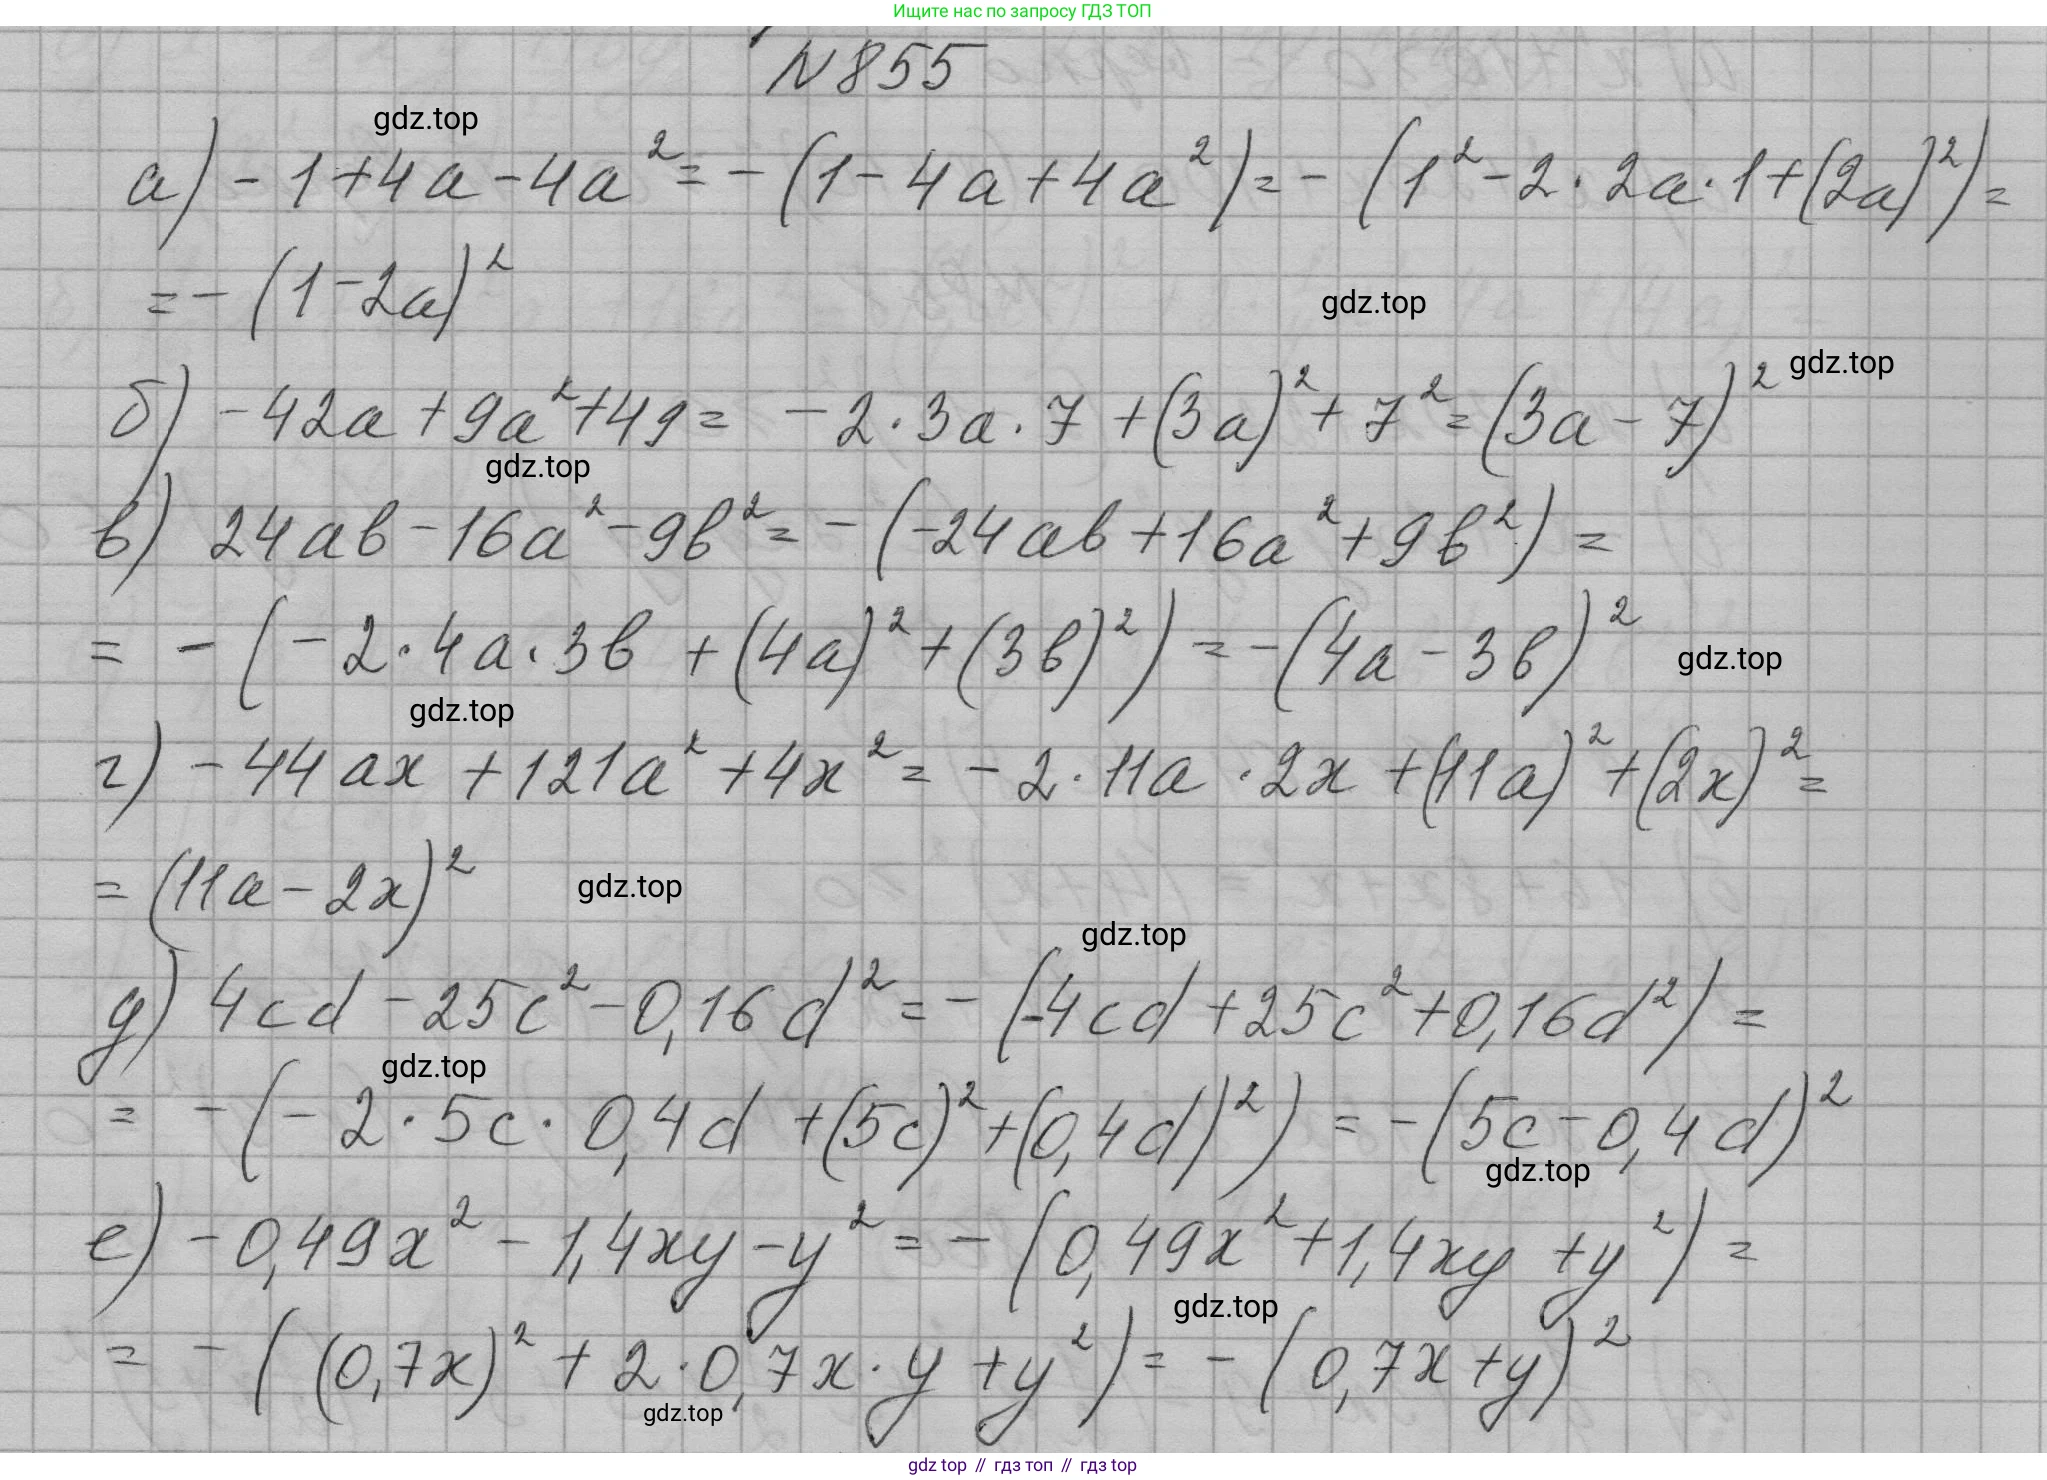 Ищите нас по запросу ГДЗ ТОП
N 855
gdz.top
а) - 1 + 4a - 4a² = - (1 - 4a + 4a²) = - (1² - 2 · 2a · 1 + (2a)²) =
= - (1 - 2a)²
gdz.top
gdz.top
б) - 42a + 9a² + 49 = - 2 · 3a · 7 + (3a)² + 7² = (3a - 7)²
gdz.top
в) 24ab - 16a² - 9b² = - (-24ab + 16a² + 9b²) =
= - (- 2 · 4a · 3b + (4a)² + (3b)²) = - (4a - 3b)²
gdz.top
gdz.top
г) - 44ax + 121a² + 4x² = - 2 · 11a · 2x + (11a)² + (2x)² =
= (11a - 2x)²
gdz.top
gdz.top
д) 4cd - 25c² - 0,16d² = - (-4cd + 25c² + 0,16d²) =
gdz.top
= - (- 2 · 5c · 0,4d + (5c)² + (0,4d)²) = - (5c - 0,4d)²
gdz.top
е) - 0,49x² - 1,4xy - y² = - (0,49x² + 1,4xy + y²) =
gdz.top
= - ((0,7x)² + 2 · 0,7x · y + y²) = - (0,7x + y)²
gdz.top
gdz top // гдз топ // гдз top